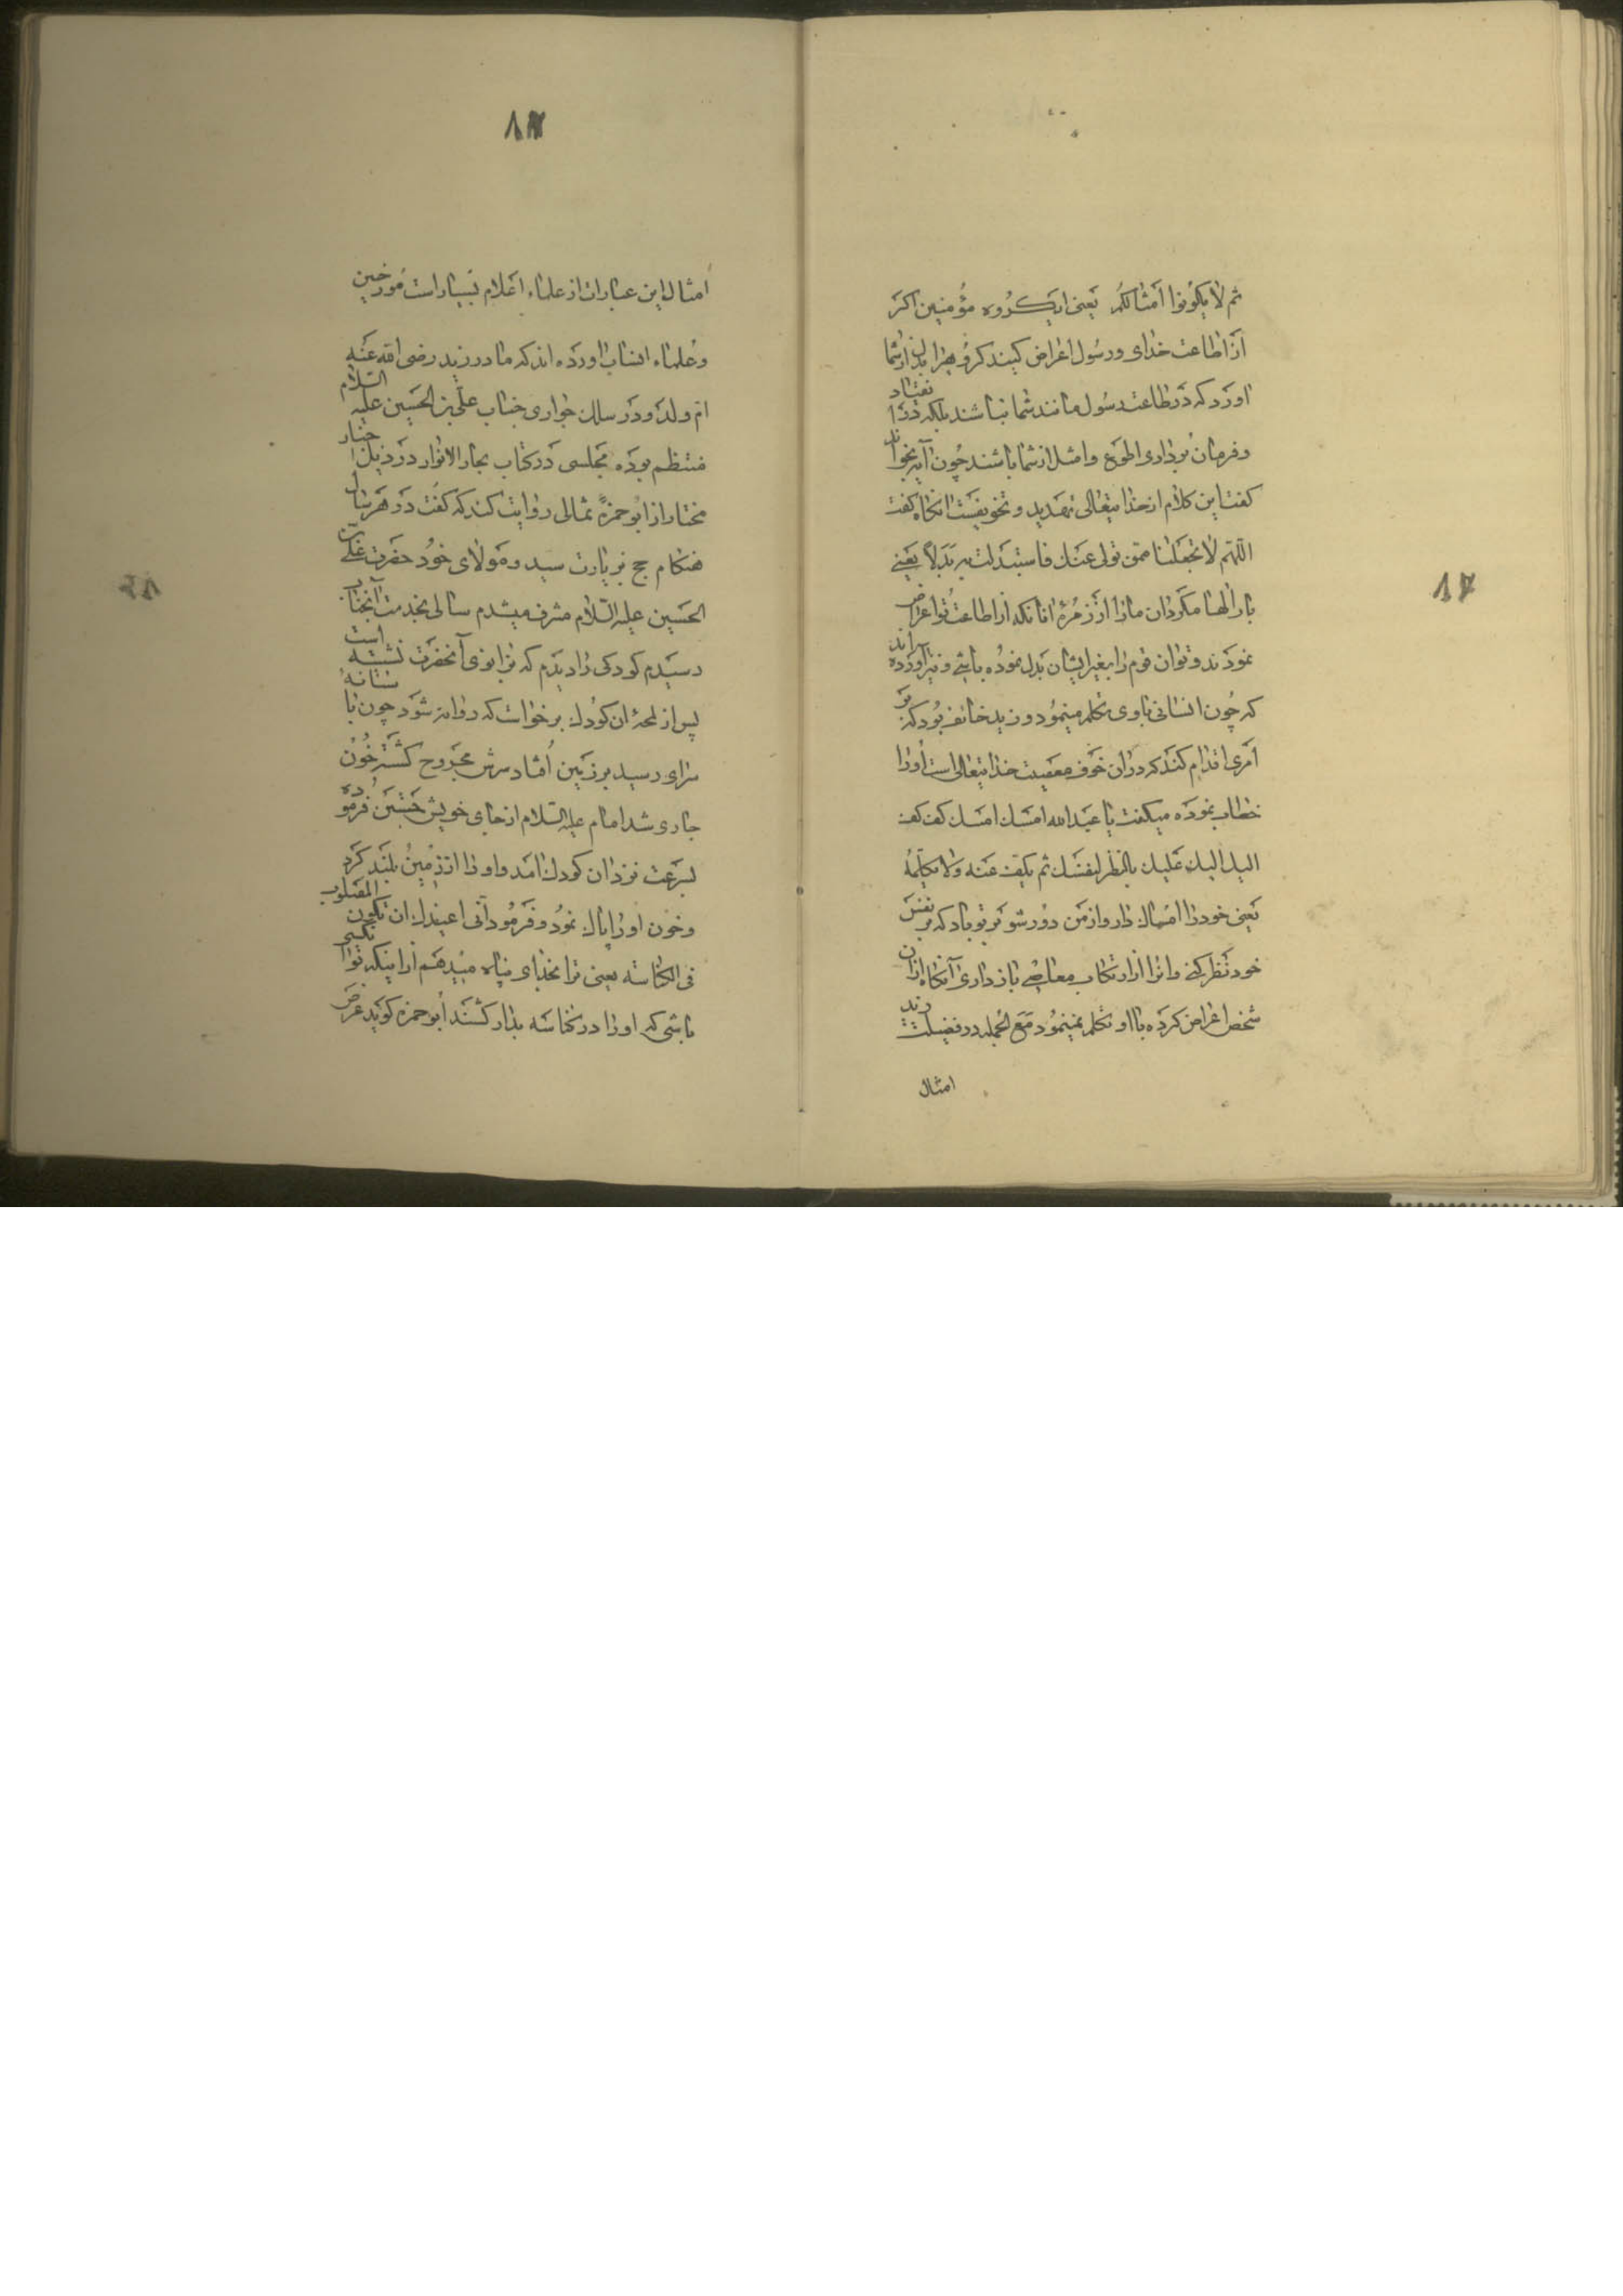 ثم لا یکونوا امثالکم یعنی ایکروه مؤمنین اکر
از اطاعت خدای ورسول اعراض کنید کروهیرا بدل ازشما
اورد که در طاعت رسول مانند شما نباشند بلکه در انقیاد
وفرمان برداری اطوع وامثل ازشما باشند چون آیه بخواند
کفت این کلام از خدایتعالی تهدید وتخویفست انکاه کفت
اللهم لا تجعلنا ممن تولی عنك فاستبدلت به بدلا یعنی
بارالها مکردان مارا از زمرهٔ انانکه از اطاعت تو اعراض
نمودند وتو ان قوم را بغیر ایشان بدل نموده باشی ونیز آورده اند
که چون انسانی باوی تکلم مینمود وزید خائف بود که بر
امری اقدام کند که دران خوف معصیت خدایتعالی است اورا
خطاب نموده میکفت یا عبد الله امسك امسك کف کف
الیك الیك علیك بالنظر لنفسك ثم یکف عنه ولا یکلمه
یعنی خودرا امساك دار واز من دور شو بر تو باد که بر نفس
خود نظر کنی وانرا از ارتکاب معاصی باز داری آنکاه ازان
شخص اعراض کرده با او تکلم نمینمود مع الجمله در فضیلت زید
امثال
۱۷
۱۸
امثال این عبارات از علماء اعلام بسیار است مورخین
وعلماء انساب اورده اند که مادر زید رضی الله عنه
ام ولد ودر سلك جواری جناب علی بن الحسین علیه السلام
منتظم بوده مجلسی در کتاب بحار الانوار در ذیل اخبار
مختار از ابو حمزهٔ ثمالی روایت کند که کفت در هر سال
هنکام حج بزیارت سید ومولای خود حضرت علی بن
الحسین علیه السلام مشرف میشدم سالی بخدمت آنجناب
رسیدم کودکی را دیدم که بزانوی آنحضرت نشسته است
پس از لمحهٔ ان کودك برخواست که روانه شود چون باستانهٔ
سرای رسید بر زمین افتاد سرش مجروح کشته خون
جاری شد امام علیه السلام از جای خویش جستین فرموده
بسرعت نزد ان کودك امد واورا از زمین بلند کرد
وخون اورا پاك نمود وفرمود انی اعیذك ان تکون المصلوب
فی الکناسه یعنی ترا بخدای پناه میدهم از اینکه تو انکسی
باشی که اورا در کناسه بدار کشند ابو حمزه کوید عرض